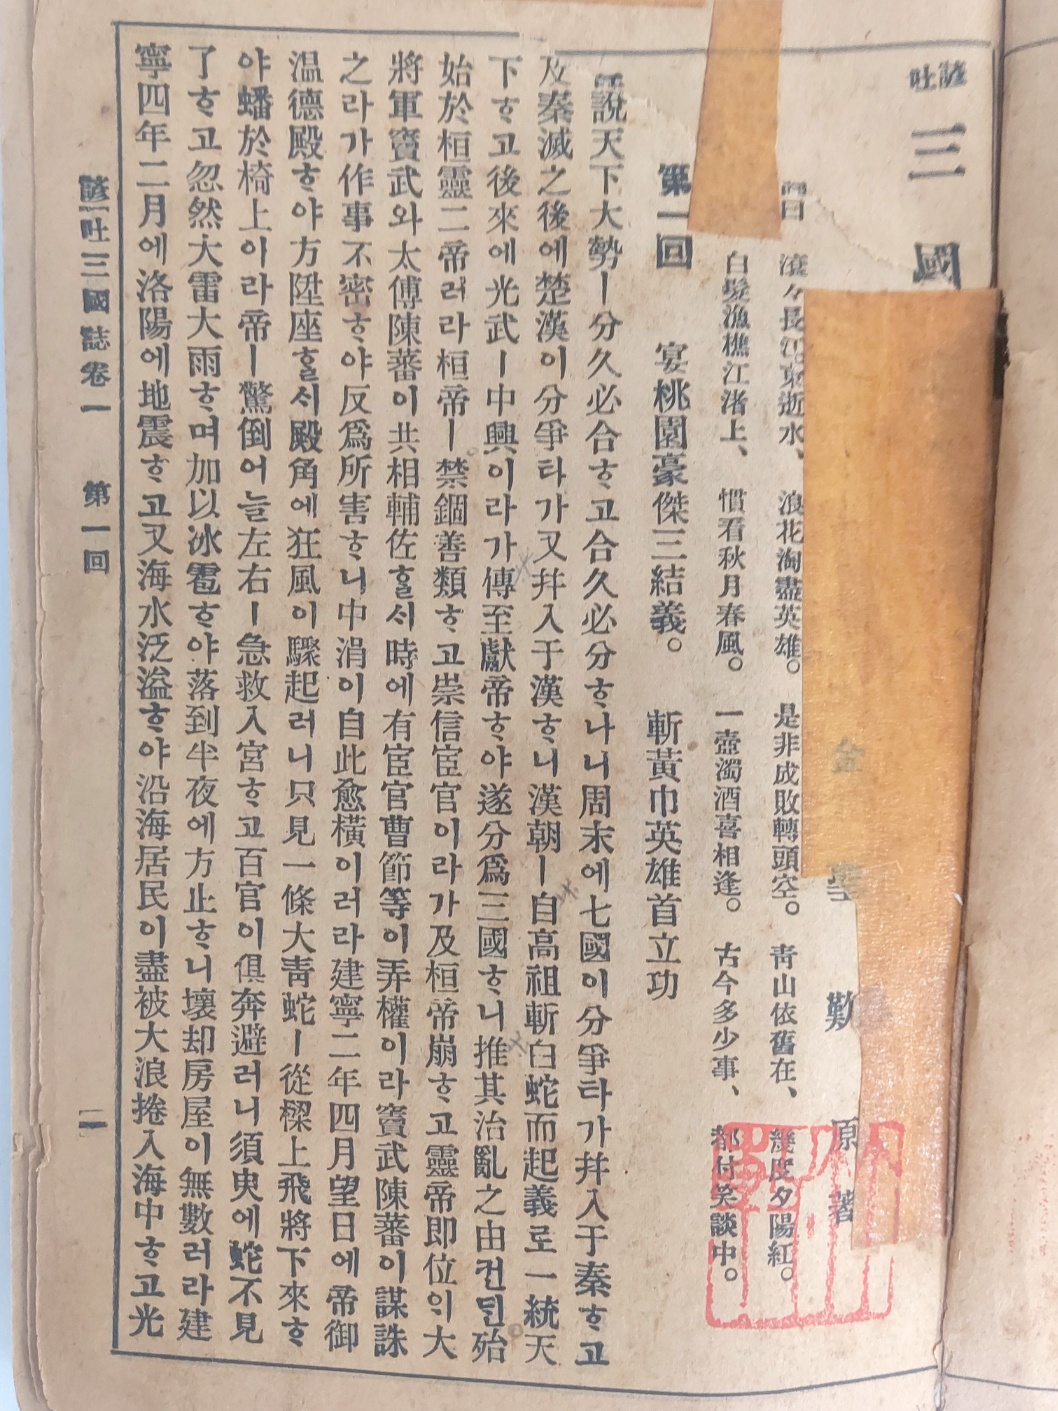 諺吐 三國
金聖歎 原著
詞曰 滾々長江東逝水、 浪花淘盡英雄。 是非成敗轉頭空。 靑山依舊在、 幾度夕陽紅。
白髮漁樵江渚上、 慣看秋月春風。 一壺濁酒喜相逢。 古今多少事、 都付笑談中。
第一回 宴桃園豪傑三結義。 斬黃巾英雄首立功
話說天下大勢ㅣ分久必合ᄒᆞ고合久必分ᄒᆞ나니周末에七國이分爭타가幷入于秦ᄒᆞ고
及秦滅之後에楚漢이分爭타가又幷入于漢ᄒᆞ니漢朝ㅣ自高祖斬白蛇而起義로一統天
下ᄒᆞ고後來에光武ㅣ中興이라가傳至獻帝ᄒᆞ야遂分爲三國ᄒᆞ니推其治亂之由컨ᄃᆡᆫ殆
始於桓靈二帝러라桓帝ㅣ禁錮善類ᄒᆞ고崇信宦官이라가及桓帝崩ᄒᆞ고靈帝即位의大
將軍竇武와太傅陳蕃이共相輔佐ᄒᆞᆯᄉᆡ時에有宦官曹節等이弄權이라竇武陳蕃이謀誅
之라가作事不密ᄒᆞ야反爲所害ᄒᆞ니中涓이自此愈橫이러라建寧二年四月望日에帝御
温德殿ᄒᆞ야方陞座ᄒᆞᆯᄉᆡ殿角에狂風이驟起러니只見一條大靑蛇ㅣ從樑上飛將下來ᄒᆞ
야蟠於椅上이라帝ㅣ驚倒어늘左右ㅣ急救入宮ᄒᆞ고百官이俱奔避러니須臾에蛇不見
了ᄒᆞ고忽然大雷大雨ᄒᆞ며加以氷雹ᄒᆞ야落到半夜에方止ᄒᆞ니壞却房屋이無數러라建
寧四年二月에洛陽에地震ᄒᆞ고又海水泛溢ᄒᆞ야沿海居民이盡被大浪捲入海中ᄒᆞ고光
諺吐三國誌卷一 第一回 一